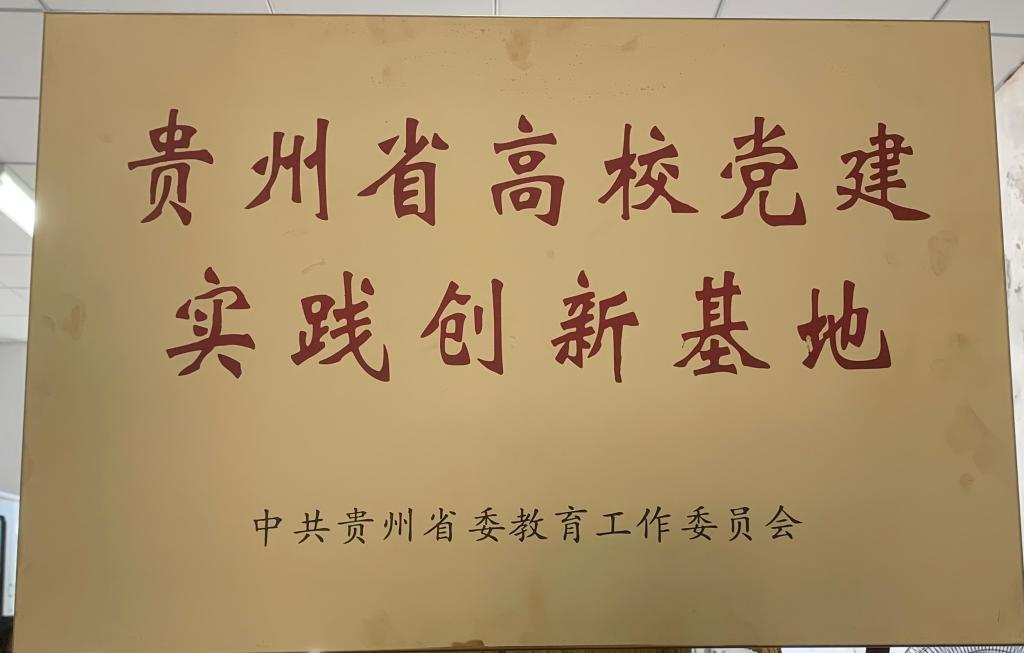 贵州省高校党建
实践创新基地
中共贵州省委教育工作委员会